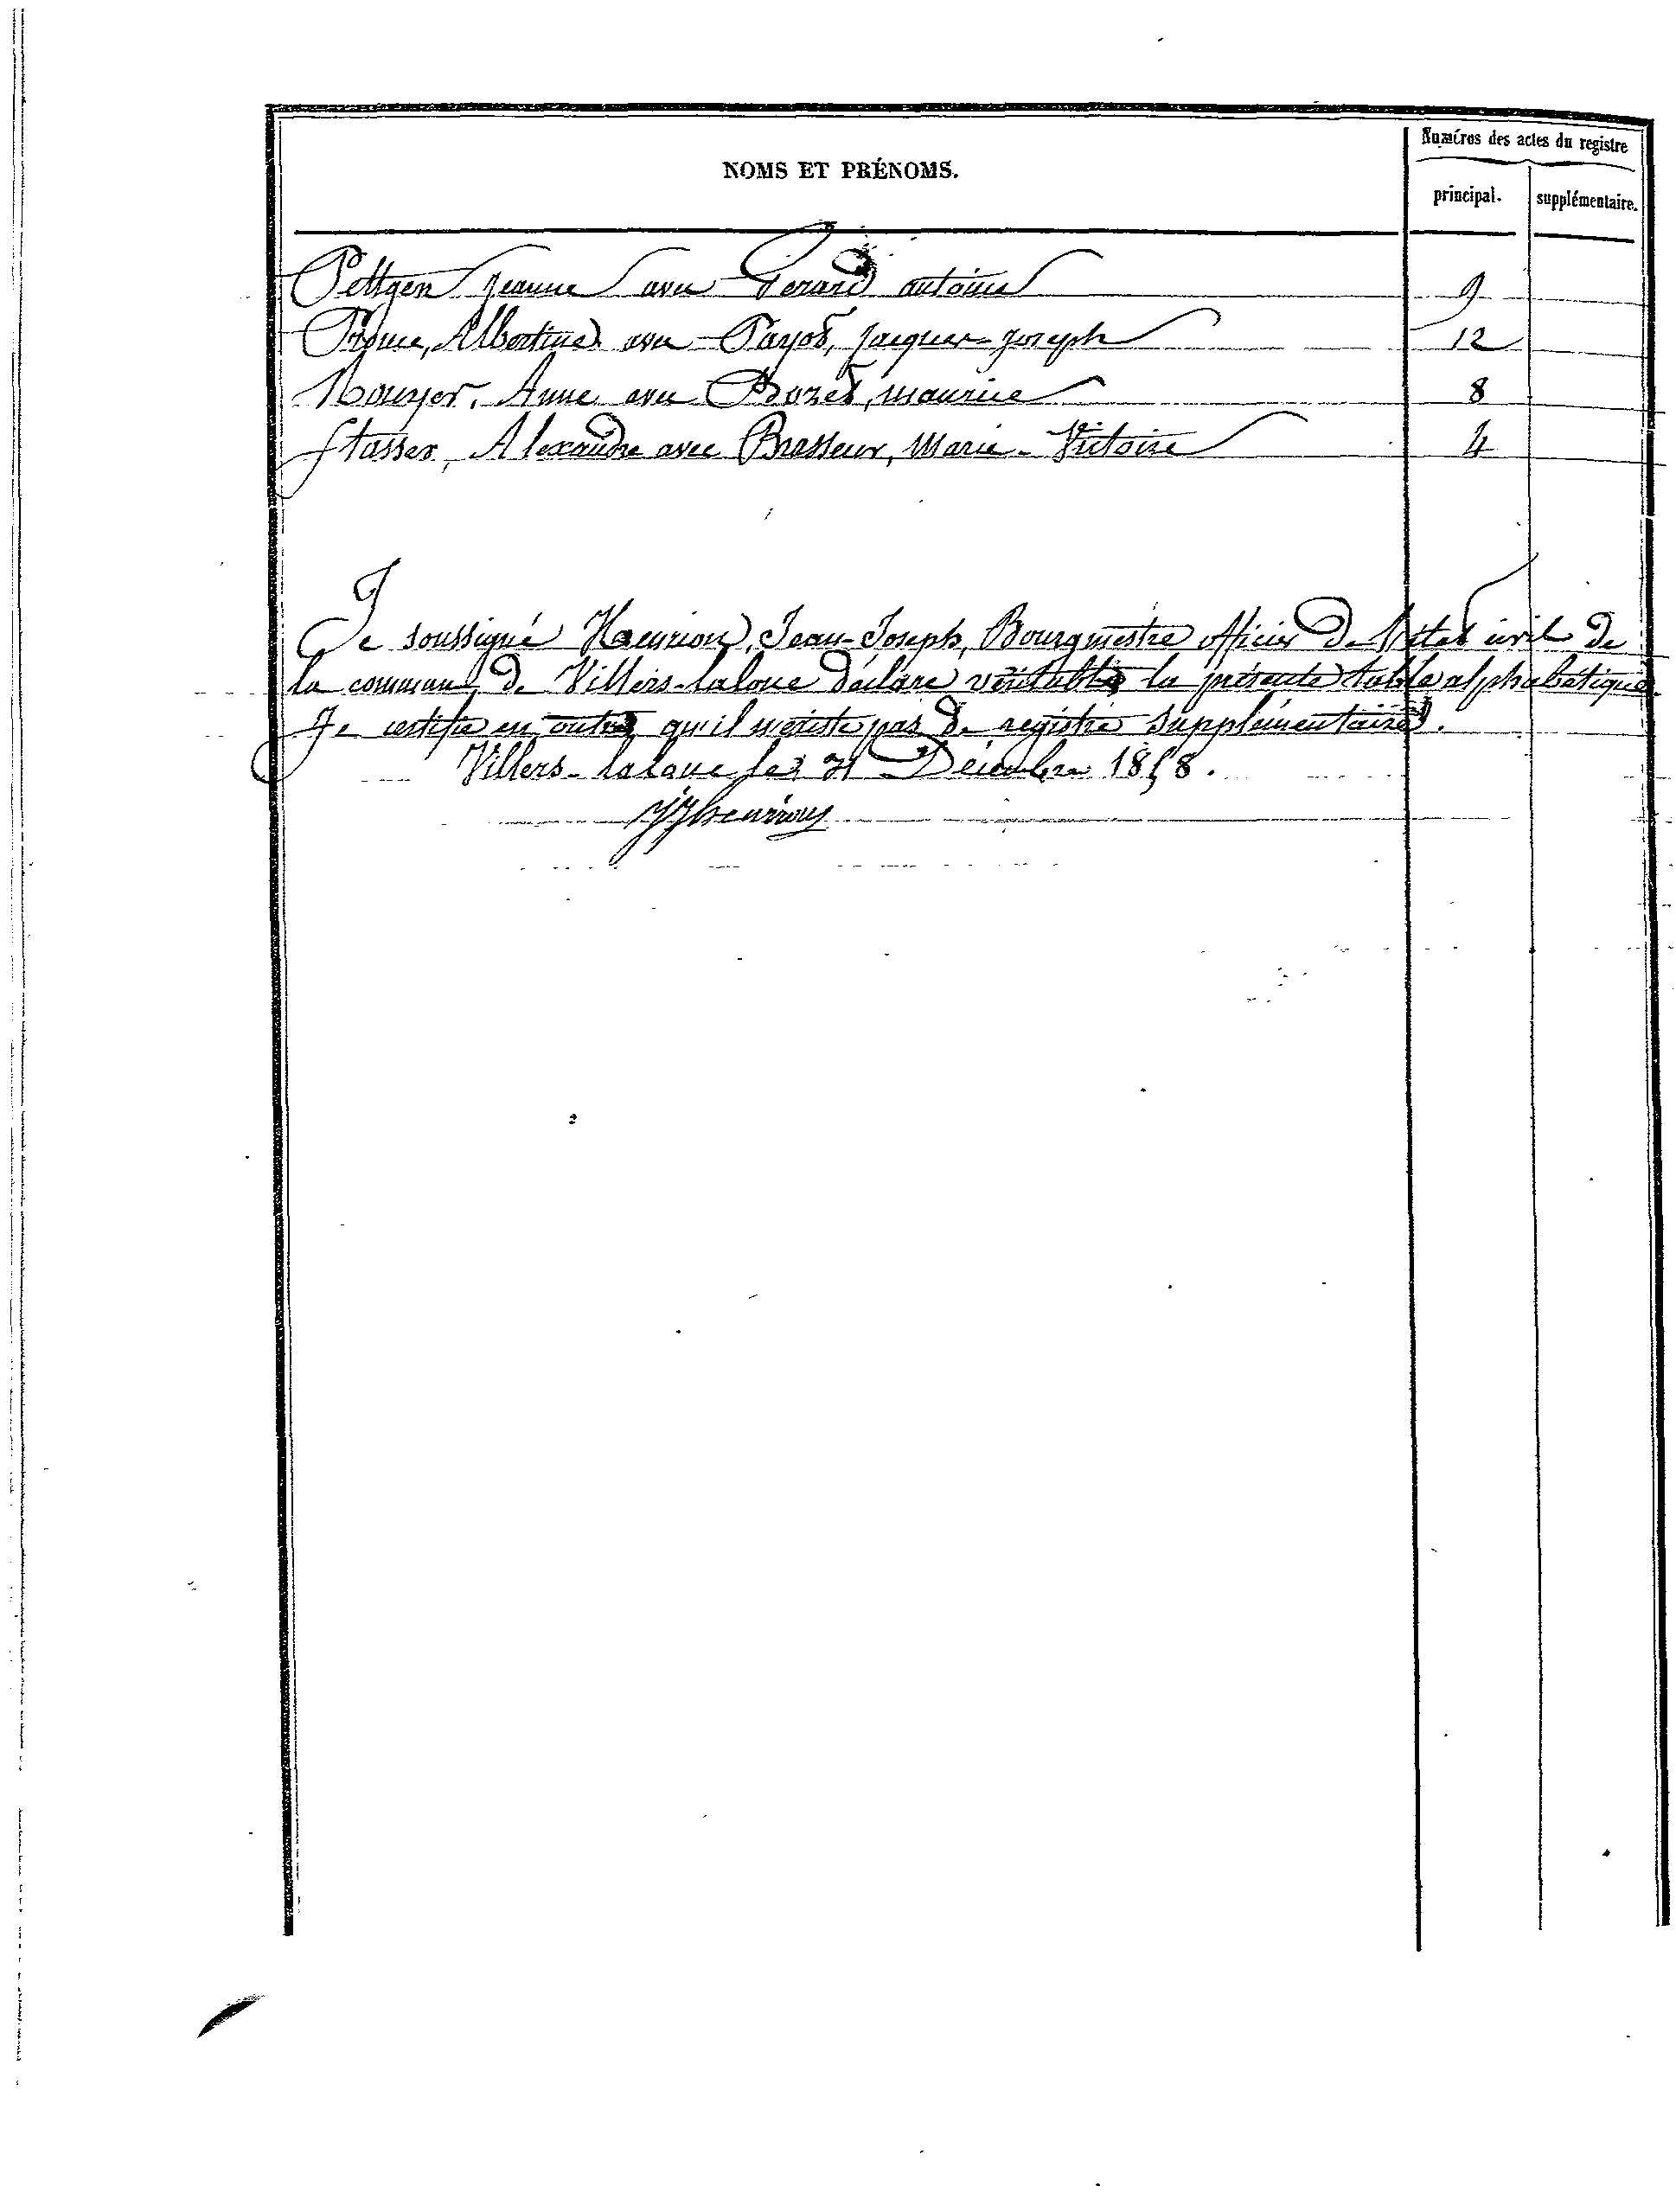 Numéros des actes du registre
NOMS ET PRÉNOMS.
principal. supplémentaire.
Pettgen Jeanne avec Gerard antoine 9
Albertine avec Payot, Jacques-Joseph 12
Anne avec Bozet, maurice 8
Stasser, Alexandre avec Brasseur, Marie-Victoire 4
Je soussigné Henrion, Jean-Joseph, Bourgmestre officier de l'état civil de
la commune de Villers-la loue déclare véritable la présente table alphabétique.
Je certifie en outre qu'il n'existe pas de registre supplémentaire.
Villers-la loue le 31 Décembre 1858.
JJhenrion